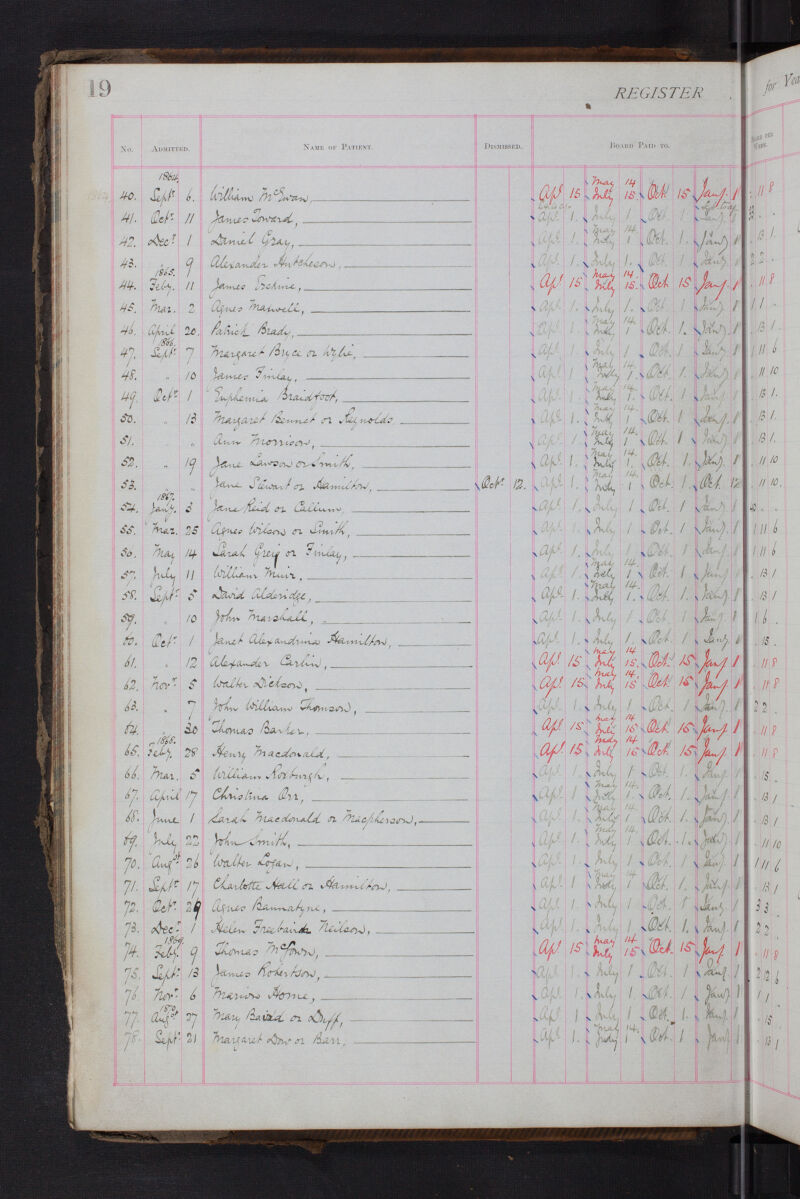 19
REGISTER
for Yea
No. ADMITTED. NAME OF PATIENT. DISMISSED. BOARD PAID TO.
1864
40. Septr 6. William McEwan, Apl 15 May 14 July 15 Octr 15 Jany 1 . 11 8
41. Octr 11 James Toward, Apl 1. July 1 Oct 1
42. Decr 1 Daniel Gray, Apl 1. May 14. July 1 Oct. 1. Jany 1 . 13 1.
43. " 9 Alexander Hutcheson, Apl 1. July 1. Oct 1 Jany 1 2 2 .
1865.
44. Feby. 11 James Erskine, Apl 15 May 14. July 15. Oct 15 Jany 1 . 11 8
45. Mar. 2 Agnes Maxwell, Apl 1. July 1. Oct 1 Jany 1 1 1 .
46. April 20. Patrick Brady, Apl 1. May 14 July 1 Oct. 1. Jany 1 . 13 1
1866.
47. Septr 7 Margaret Bryce or Wylie, Apl 1. July 1 Oct. 1 Jany 1 1 11 6
48. " 10 James Finlay, Apl 1 May 14. July 1. Oct. 1. Jany 1 . 11 10
49. Octr 1 Euphemia Braidfoot, Apl 1. May 14 July 1. Oct. 1 Jany 1 . 13 1.
50. " 13 Margaret Bennet or Reynolds Apl 1. May 14. July 1 Oct 1 Jany 1 . 13 1.
51. " " Ann Morrison, Apl 1 May 14. July 1 Oct 1 Jany 1 . 13 1.
52. " 19 Jane Lawson or Smith, Apl 1. May 14 July 1. Oct. 1. Jany 1 . 11 10
53. " " Jane Stewart or Hamilton, Octr 12. Apl 1. May 14 July 1 Oct. 1 Oct. 12 . 11 10.
1867.
54. Jany. 3 Jane Reid or Callum, Apl 1. July 1 Oct. 1 Jany 1
55. Mar. 25 Agnes Wilson or Smith, Apl 1. July 1 Oct. 1 Jany 1 1 11 6
56. May 14 Sarah Greig or Finlay, Apl 1. July 1 Oct 1 Jany 1 1 11 6
57. July 11 William Muir, Apl 1 May 14. July 1 Oct. 1 Jany 1 . 13 1
58. Septr 5 David Alderidge, Apl 1. May 14. July 1. Oct. 1. Jany 1 . 13 1
59. " 10 John Marshall, Apl 1. July 1 Oct 1 Jany 1 1 6 .
60. Octr 1 Janet Alexandrina Hamilton, Apl 1. July 1. Oct. 1 Jany 1 . 15 .
61. " 12 Alexander Carlin, Apl 15 May 14 July 15. Oct. 15 Jany 1 . 11 8
62. Novr 5 Walter Dickson, Apl 15 May 14. July 15 Oct 15 Jany 1 . 11 8
63. " 7 John William Thomson, Apl 1. July 1 Oct. 1 Jany 1 2 2 .
64. " 30 Thomas Barker, Apl 15 May 14 July 15 Oct 15 Jany 1 . 11 8
1868.
65. Feby. 28 Henry Macdonald, Apl 15 May 14 July 15 Oct. 15 Jany 1 . 11 8
66. Mar. 5 William Roxburgh, Apl 1. July 1 Oct. 1. Jany 1 . 15 .
67. April 17 Christina Orr, Apl 1 May 14. July 1 Oct. 1. Jany 1 . 13 1
68. June 1 Sarah Macdonald or Macpherson, Apl 1. May 14. July 1 Oct 1. Jany 1 . 13 1
69. July 22 John Smith, Apl 1. May 14. July 1 Oct. 1. Jany 1 . 11 10
70. Augst 26 Walter Logan, Apl 1. July 1 Oct. 1 Jany 1 1 11 6
71. Septr 17 Charlotte Hall or Hamilton, Apl 1 May 14 July 1 Oct. 1. Jany 1 . 13 1
72. Octr 29 Agnes Bannatyne, Apl 1. July 1 Oct 1 Jany 1 3 3 .
73. Decr 1 Helen Freebairn Neilson, Apl 1. July 1 Oct. 1. Jany 1 2 2 .
1869.
74. Feby. 9 Thomas McGown, Apl 15 May 14 July 15 Oct. 15 Jany 1 . 11 8
75. Septr 13 James Robertson, Apl 1. July 1. Oct. 1 Jany 1 2 12 6
76. Novr 6 Marion Horne, Apl 1. July 1. Oct. 1 Jany 1 1 1
1870.
77. Augst 27 Mary Baird or Duff, Apl 1 July 1 Oct. 1. Jany 1 . 15
78. Septr 21 Margaret Dow or Barr, Apl 1. May 14. July 1 Oct. 1 Jany 1 . 13 1